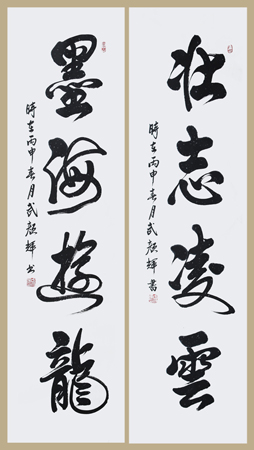 壯志凌雲
時在丙申春月武顏輝書
墨海遊龍
時在丙申春月武顏輝书